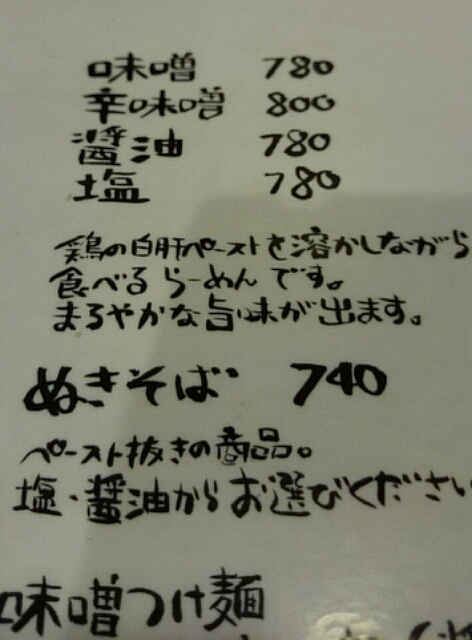 味噌 780
辛味噌 800
醤油 780
塩 780
鶏の白肝ペーストを溶かしながら
食べるらーめんです。
まろやかな旨味が出ます。
ぬきそば 740
ペースト抜きの商品。
塩・醤油からお選びください
味噌つけ麺